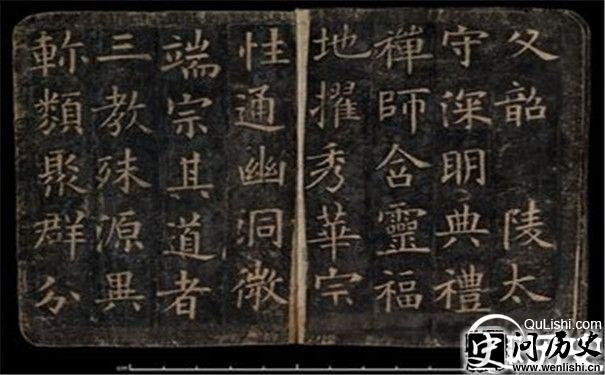 父韶 陵太
守深明典禮
禪師含靈福
地擢秀華宗
性通幽洞微
端宗其道者
三教殊源異
軫類聚群分
QuLishi.com
问历史
www.wenlishi.cn